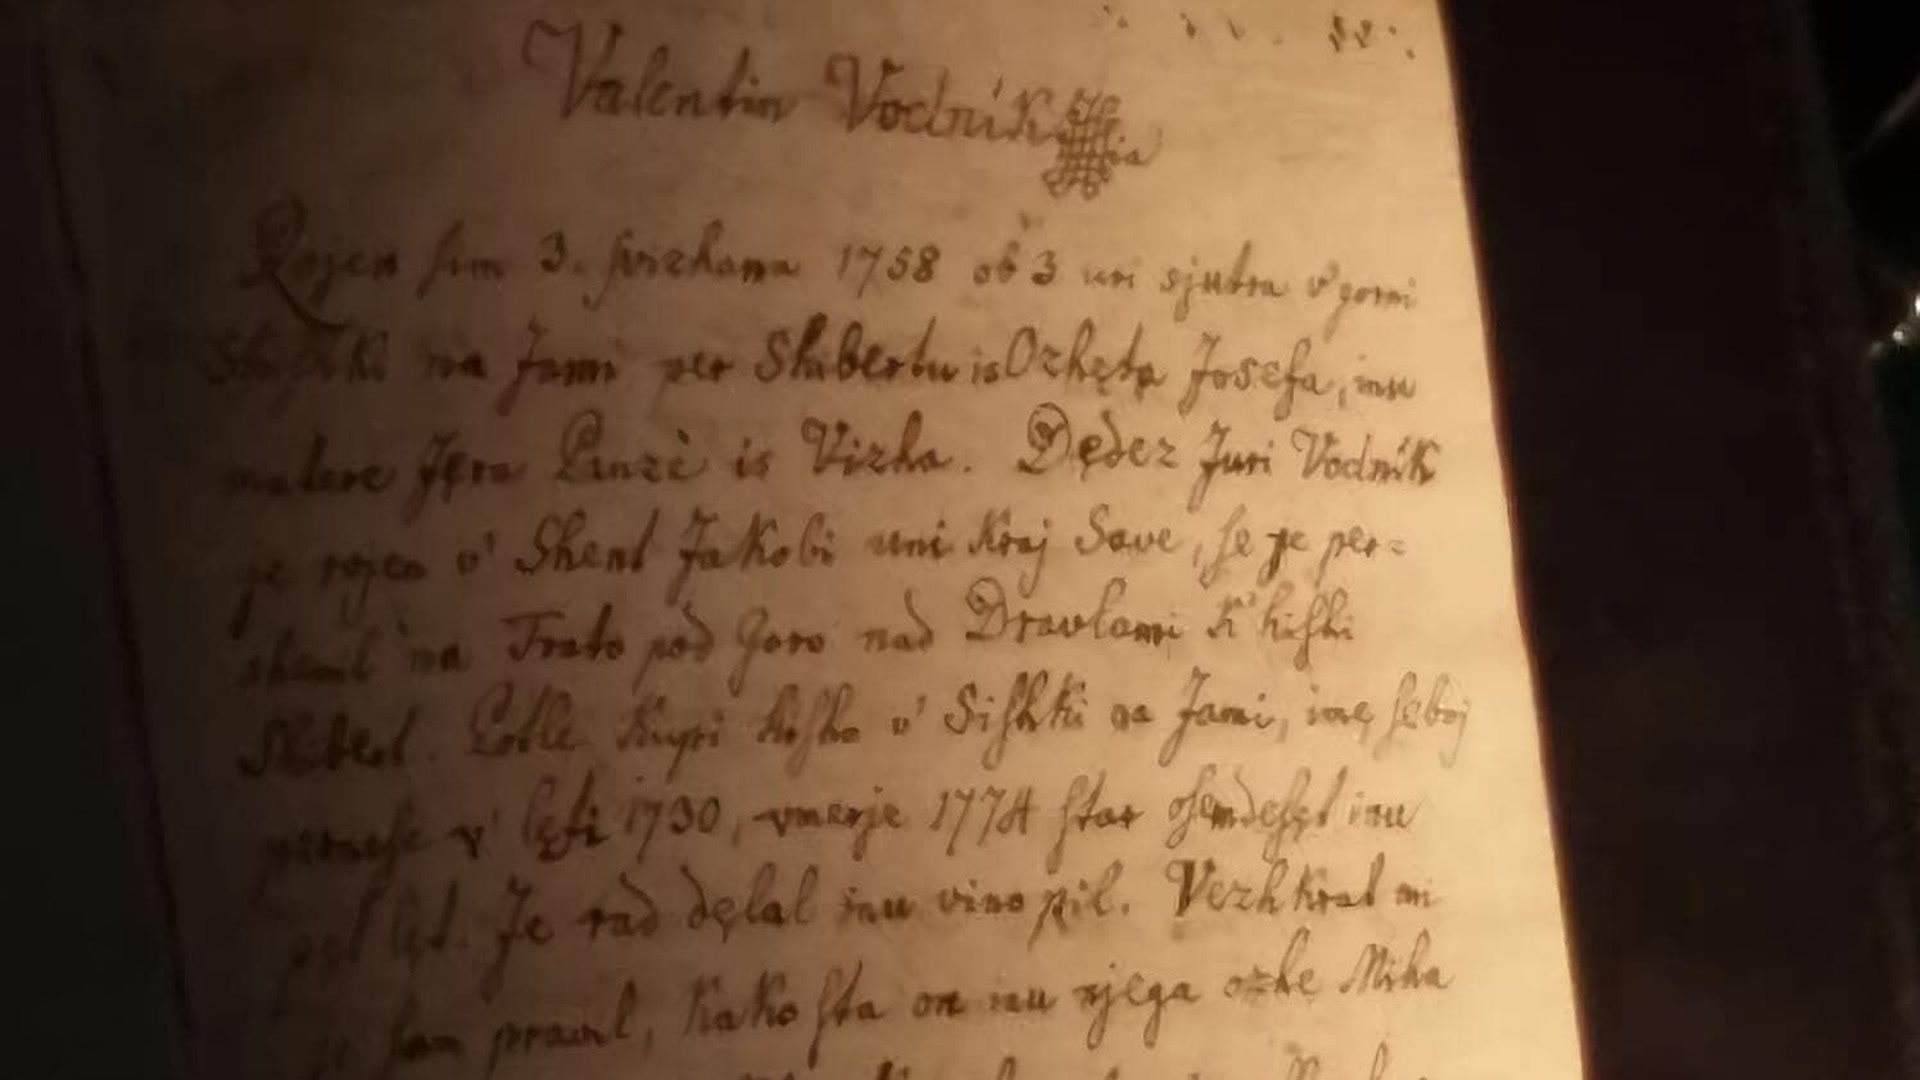 Valentin Vodnik
Rojen ſim 3. ſvizhana 1758 ob 3 uri sjutra v' gorni
Shiſhki na Jami per Shibertu is Ozhęta Josefa, inu
matere Jęra Panzè is Vizha. Dędez Juri Vodnik
je rojen v' Shent Jakobi uni kraj Save, ſe je per=
shenil na Trato pod Goro nad Dravlami k' hiſhi
Shibert. Potle kupi hiſho v' Siſhki na Jami, imę ſęboj
pernese v' lęti 1730, vmerje 1774 ſtar oſemdeſęt inu
pęt lęt. Je rad dęlal inu vino pil. Vezhkrat mi
je ſam pravil, kako ſta on inu njega ozhe Miha